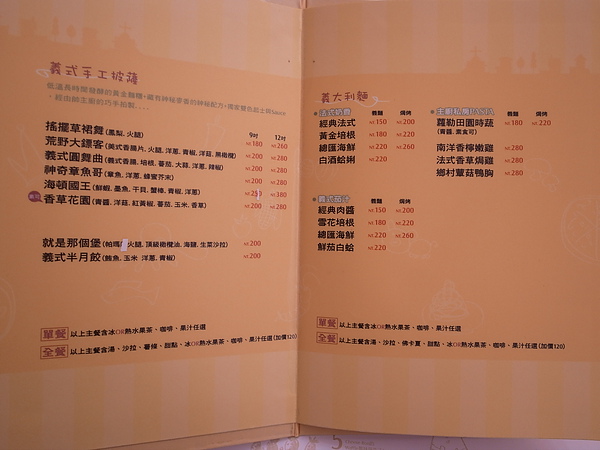 義式手工披薩
9吋 12吋
搖擺草裙舞(鳳梨, 火腿) NT.180 NT.260
荒野大鏢客(美式香腸片, 火腿, 洋蔥, 青椒, 洋菇, 黑橄欖) NT.200 NT.280
義式圓舞曲(義式香腸, 培根, 蕃茄, 大蒜, 洋蔥, 辣椒) NT.200 NT.280
神奇章魚哥(章魚, 洋蔥, 蜂蜜芥末) NT.200 NT.280
海頓國王(鮮蝦, 墨魚, 干貝, 蟹棒, 青椒, 洋蔥) NT.250 NT.380
香草花園(青醬, 洋菇, 紅黃椒, 蕃茄, 玉米, 香草) NT.200 NT.280
就是那個堡(帕瑪 火腿, 頂級橄欖油, 海鹽, 生菜沙拉) NT.200
義式半月餃(鮪魚, 玉米, 洋蔥, 青椒) NT.200
單餐 以上主餐含冰OR熱水果茶、咖啡、果汁任選
全餐 以上主餐含湯、沙拉、薯條、甜點、冰OR熱水果茶、咖啡、果汁任選(加價120)
義大利麵
法式奶香 義麵 焗烤
經典法式 NT.150 NT.200
黃金培根 NT.180 NT.220
總匯海鮮 NT.220 NT.260
白酒蛤蜊 NT.220
義式茄汁 義麵 焗烤
經典肉醬 NT.150 NT.200
雪花培根 NT.180 NT.220
總匯海鮮 NT.220 NT.260
鮮茄白蛤 NT.220
主廚私房PASTA 義麵 焗烤
蘿勒田園時蔬 NT.180 NT.220
(青醬, 素食可)
南洋香檸嫩雞 NT.280
法式香草焗雞 NT.280
鄉村蕈菇鴨胸 NT.280
單餐 以上主餐含冰OR熱水果茶、咖啡、果汁任選
全餐 以上主餐含湯、沙拉、佛卡夏、甜點、冰OR熱水果茶、咖啡、果汁任選(加價120)